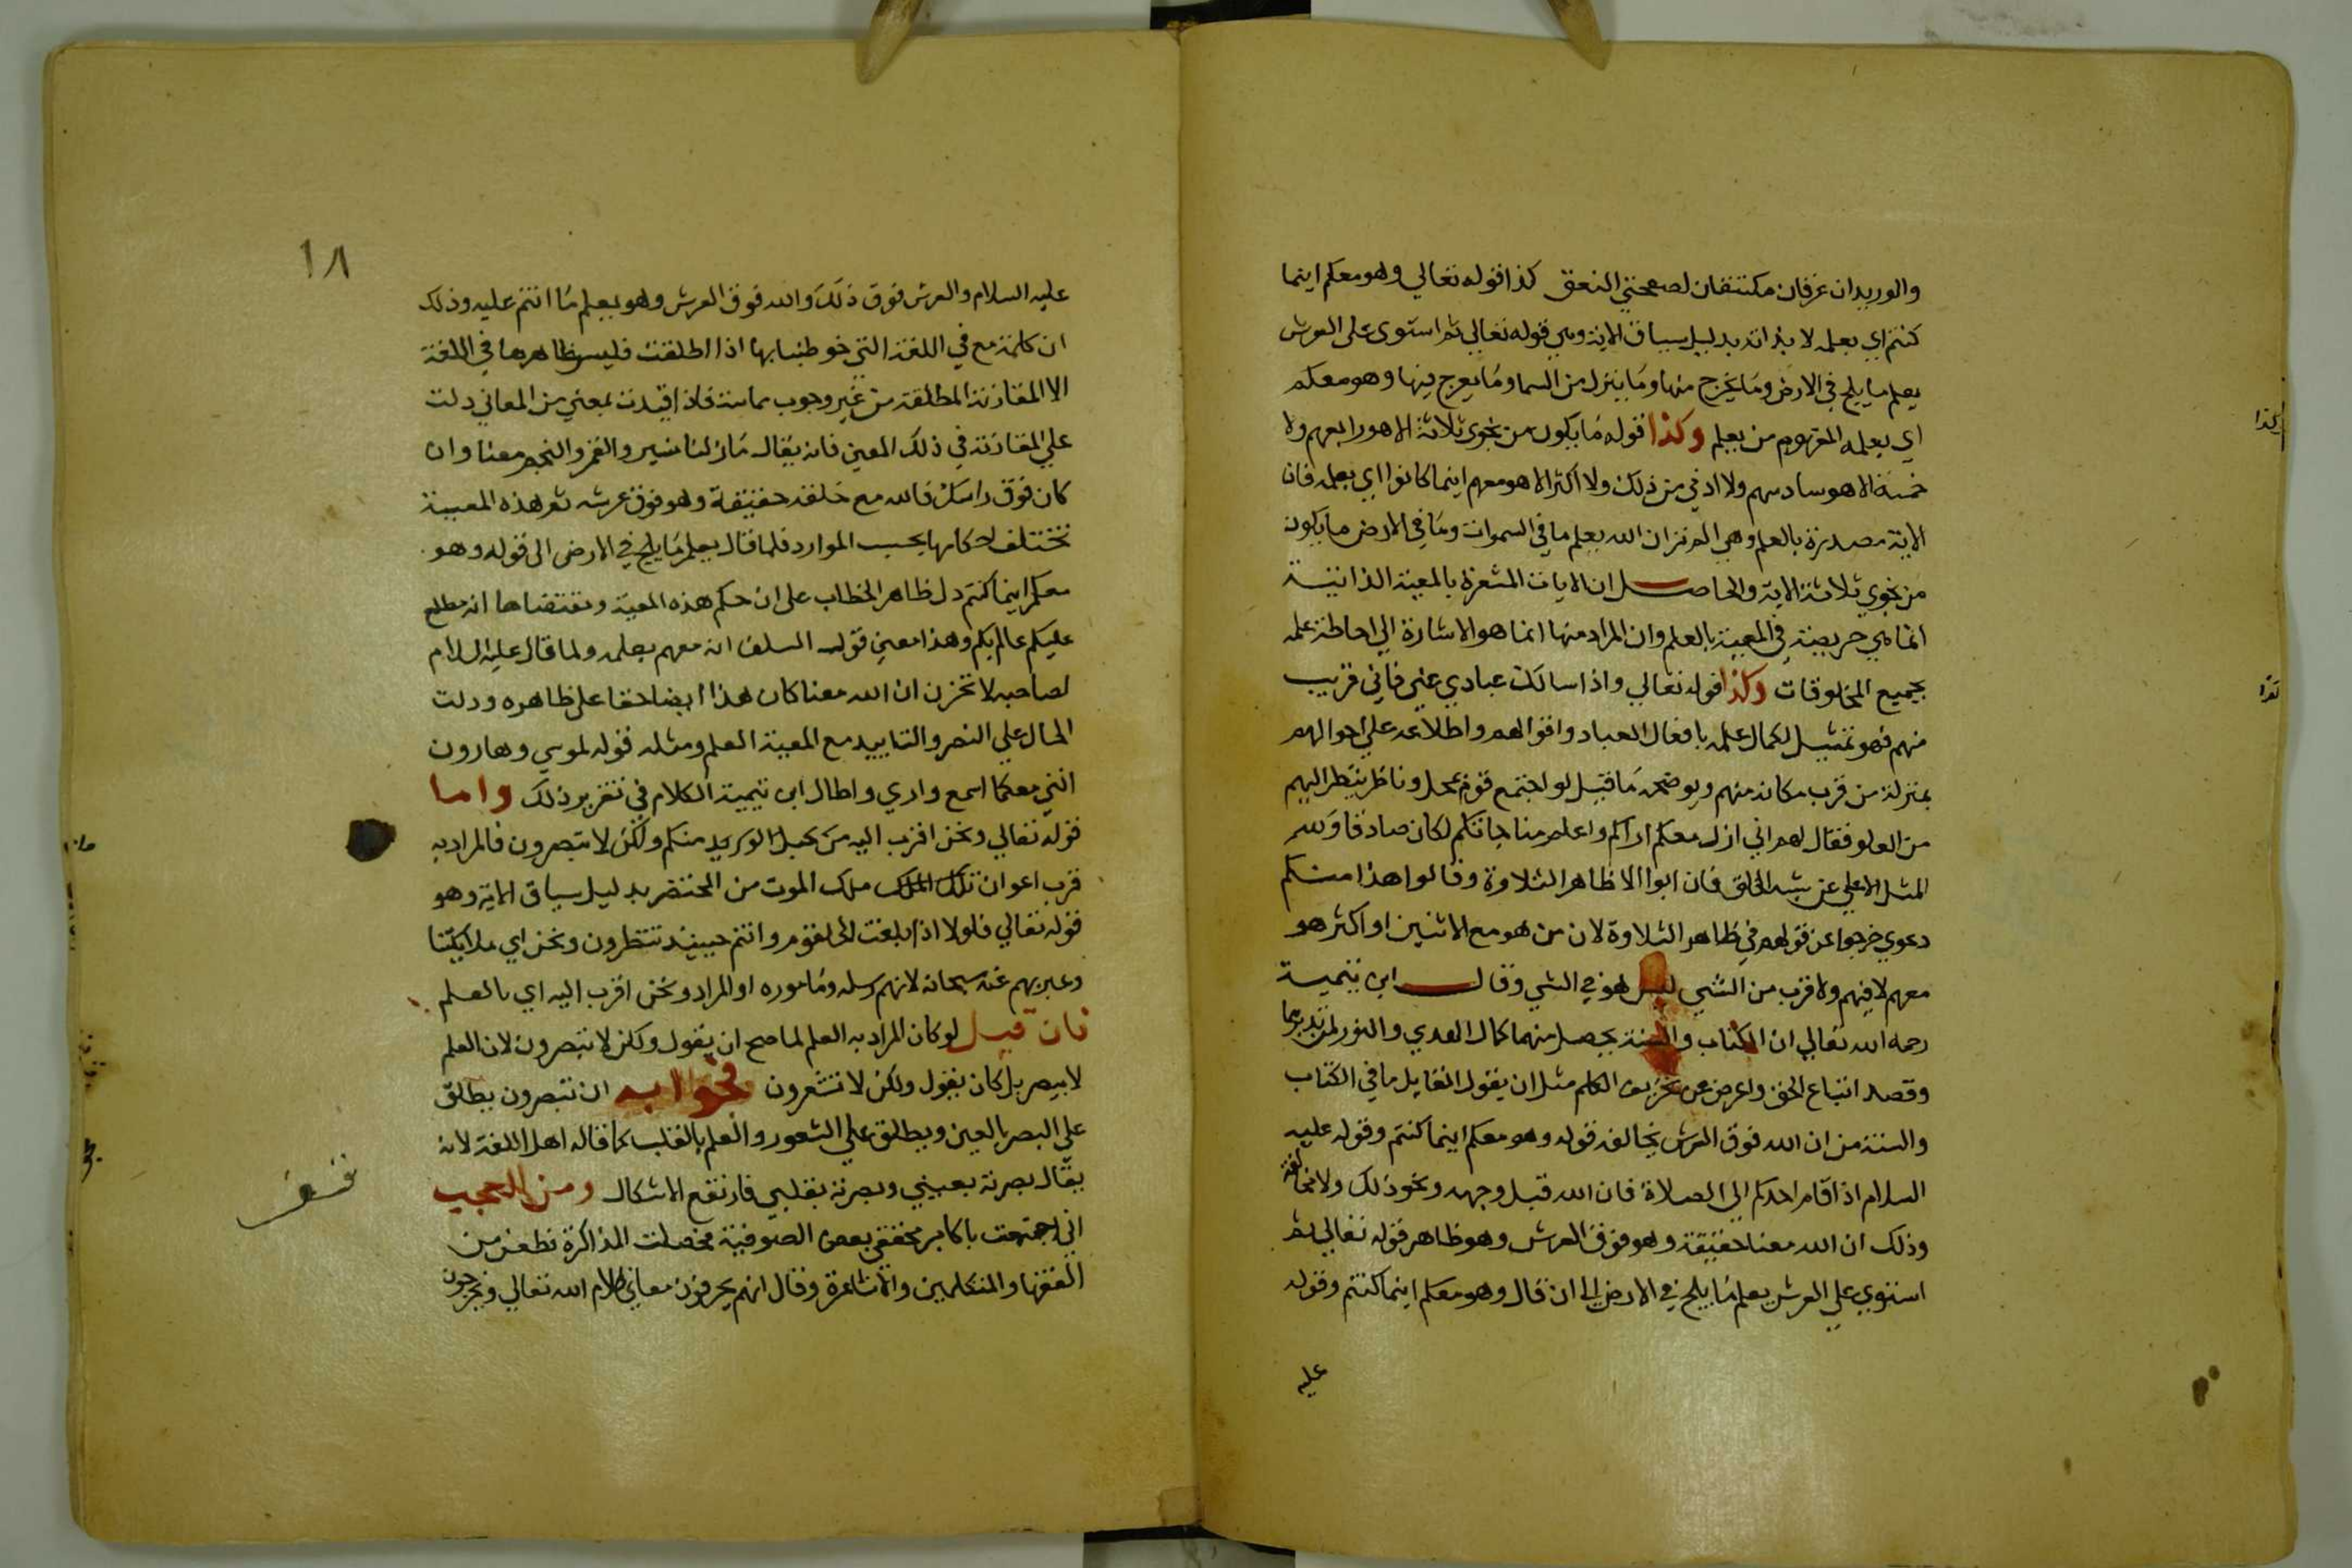 والوريدان عرقان مكتنفان لصفحتي العنق كذا قوله تعالي وهو معكم اينما
كنتم اي بعلمه لا بذاته بدليل سياق الاية وهي قوله تعالي ثم استوى على العرش
يعلم ما يلج في الارض وما يخرج منها وما ينزل من السما وما يعرج فيها وهو معكم
اي بعلمه المفهوم من يعلم وكذا قوله ما يكون من نجوى ثلاثة الا هو رابعهم ولا
خمسة الا هو سادسهم ولا ادني من ذلك ولا اكثر الا هو معهم اينما كانوا اي بعلمه فان
الاية مصدرة بالعلم وهي الم تر ان الله يعلم ما في السموات وما في الارض ما يكون
من نجوي ثلاثة الاية والحاصل ان الايات المشعرة بالمعية الذاتية
انما هي صريحة في المعية بالعلم وان المراد منها انما هو الاشارة الي احاطة علمه
بجميع المخلوقات وكذا قوله تعالي واذا سالك عبادي عني فاني قريب
منهم فهو تمثيل لكمال علمه بافعال العباد واقوالهم واطلاعه علي احوالهم
بمنزلة من قرب مكانه منهم ويوضحه ما قيل لو اجتمع قوم بمحل وناظر ينظر اليهم
من العلو فقال لهم اني ازل معكم اراكم واعلم مناجاتكم لكان صادقا ولله
المثل الاعلي عن شبه الخلق فان ابوا الا ظاهر التلاوة وقالوا هذا منكم
دعوي خرجوا عن قولهم في ظاهر التلاوة لان من هو مع الاثنين او اكثر هو
معهم لا فيهم ولا قرب من الشي ليس هو في الشي وقال ابن تيمية
رحمه الله تعالي ان الكتاب والسنة يحصل منهما كمال الهدي والنور لمن تدبرهما
وقصد اتباع الحق واعرض عن تحريف الكلم مثل ان يقول القايل ما في الكتاب
والسنة من ان الله فوق العرش يخالفه قوله وهو معكم اينما كنتم وقوله عليه
السلام اذا قام احدكم الي الصلاة فان الله قبل وجهه ونحو ذلك ولا مخالفة
وذلك ان الله معنا حقيقة وهو فوق العرش وهو ظاهر قوله تعالي ثم
استوي علي العرش يعلم ما يلج في الارض الى ان قال وهو معكم اينما كنتم وقوله
عليه
١٨
عليه السلام والعرش فوق ذلك والله فوق العرش وهو يعلم ما انتم عليه وذلك
ان كلمة مع في اللغة التي خوطبنا بها اذا اطلقت فليس ظاهرها في اللغة
الا المقارنة المطلقة من غير وجوب مماسة فاذا قيدت بمعني من المعاني دلت
علي المقارنة في ذلك المعين فانه يقال ما زلنا نسير والقمر والنجم معنا وان
كان فوق راسك فالله مع خلقه حقيقة وهو فوق عرشه ثم هذه المعية
تختلف احكامها بحسب الموارد فلما قال يعلم ما يلج في الارض الى قوله وهو
معكم اينما كنتم دل ظاهر الخطاب على ان حكم هذه المعية ومقتضاها انه مطلع
عليكم عالم بكم وهذا معني قول السلف انه معهم بعلمه ولما قال عليه السلام
لصاحبه لا تحزن ان الله معنا كان هذا ايضا حقا على ظاهره ودلت
الحال علي النصر والتاييد مع المعية العلم ومثله قوله لموسي وهارون
انني معكما اسمع واري واطال ابن تيمية الكلام في تقرير ذلك واما
قوله تعالي ونحن اقرب اليه من حبل الوريد منكم ولكن لا تبصرون فالمراد به
قرب اعوان تلك الملك ملك الموت من المحتضر بدليل سياق الاية وهو
قوله تعالي فلولا اذا بلغت الحلقوم وانتم حينئذ تنظرون ونحن اي ملايكتنا
وعبر بهم عنه سبحانه لانهم رسله ومأموره او المراد ونحن اقرب اليه اي بالعلم
فان قيل لو كان المراد به العلم لما صح ان يقول ولكن لا تبصرون لان العلم
لا يبصر بل كان يقول ولكن لا تشعرون فجوابه ان تبصرون يطلق
علي البصر بالعين ويطلق علي الشعور والعلم بالقلب كما قاله اهل اللغة لانه
يقال بصرته بعيني وبصرته بقلبي فارتفع الاشكال ومن العجيب
اني اجتمعت باكابر محققي بعض الصوفية فحصلت المذاكرة فطعن من
الفقها والمتكلمين والاشاعرة وقال انهم يحرفون معاني كلام الله تعالي ويخرجون